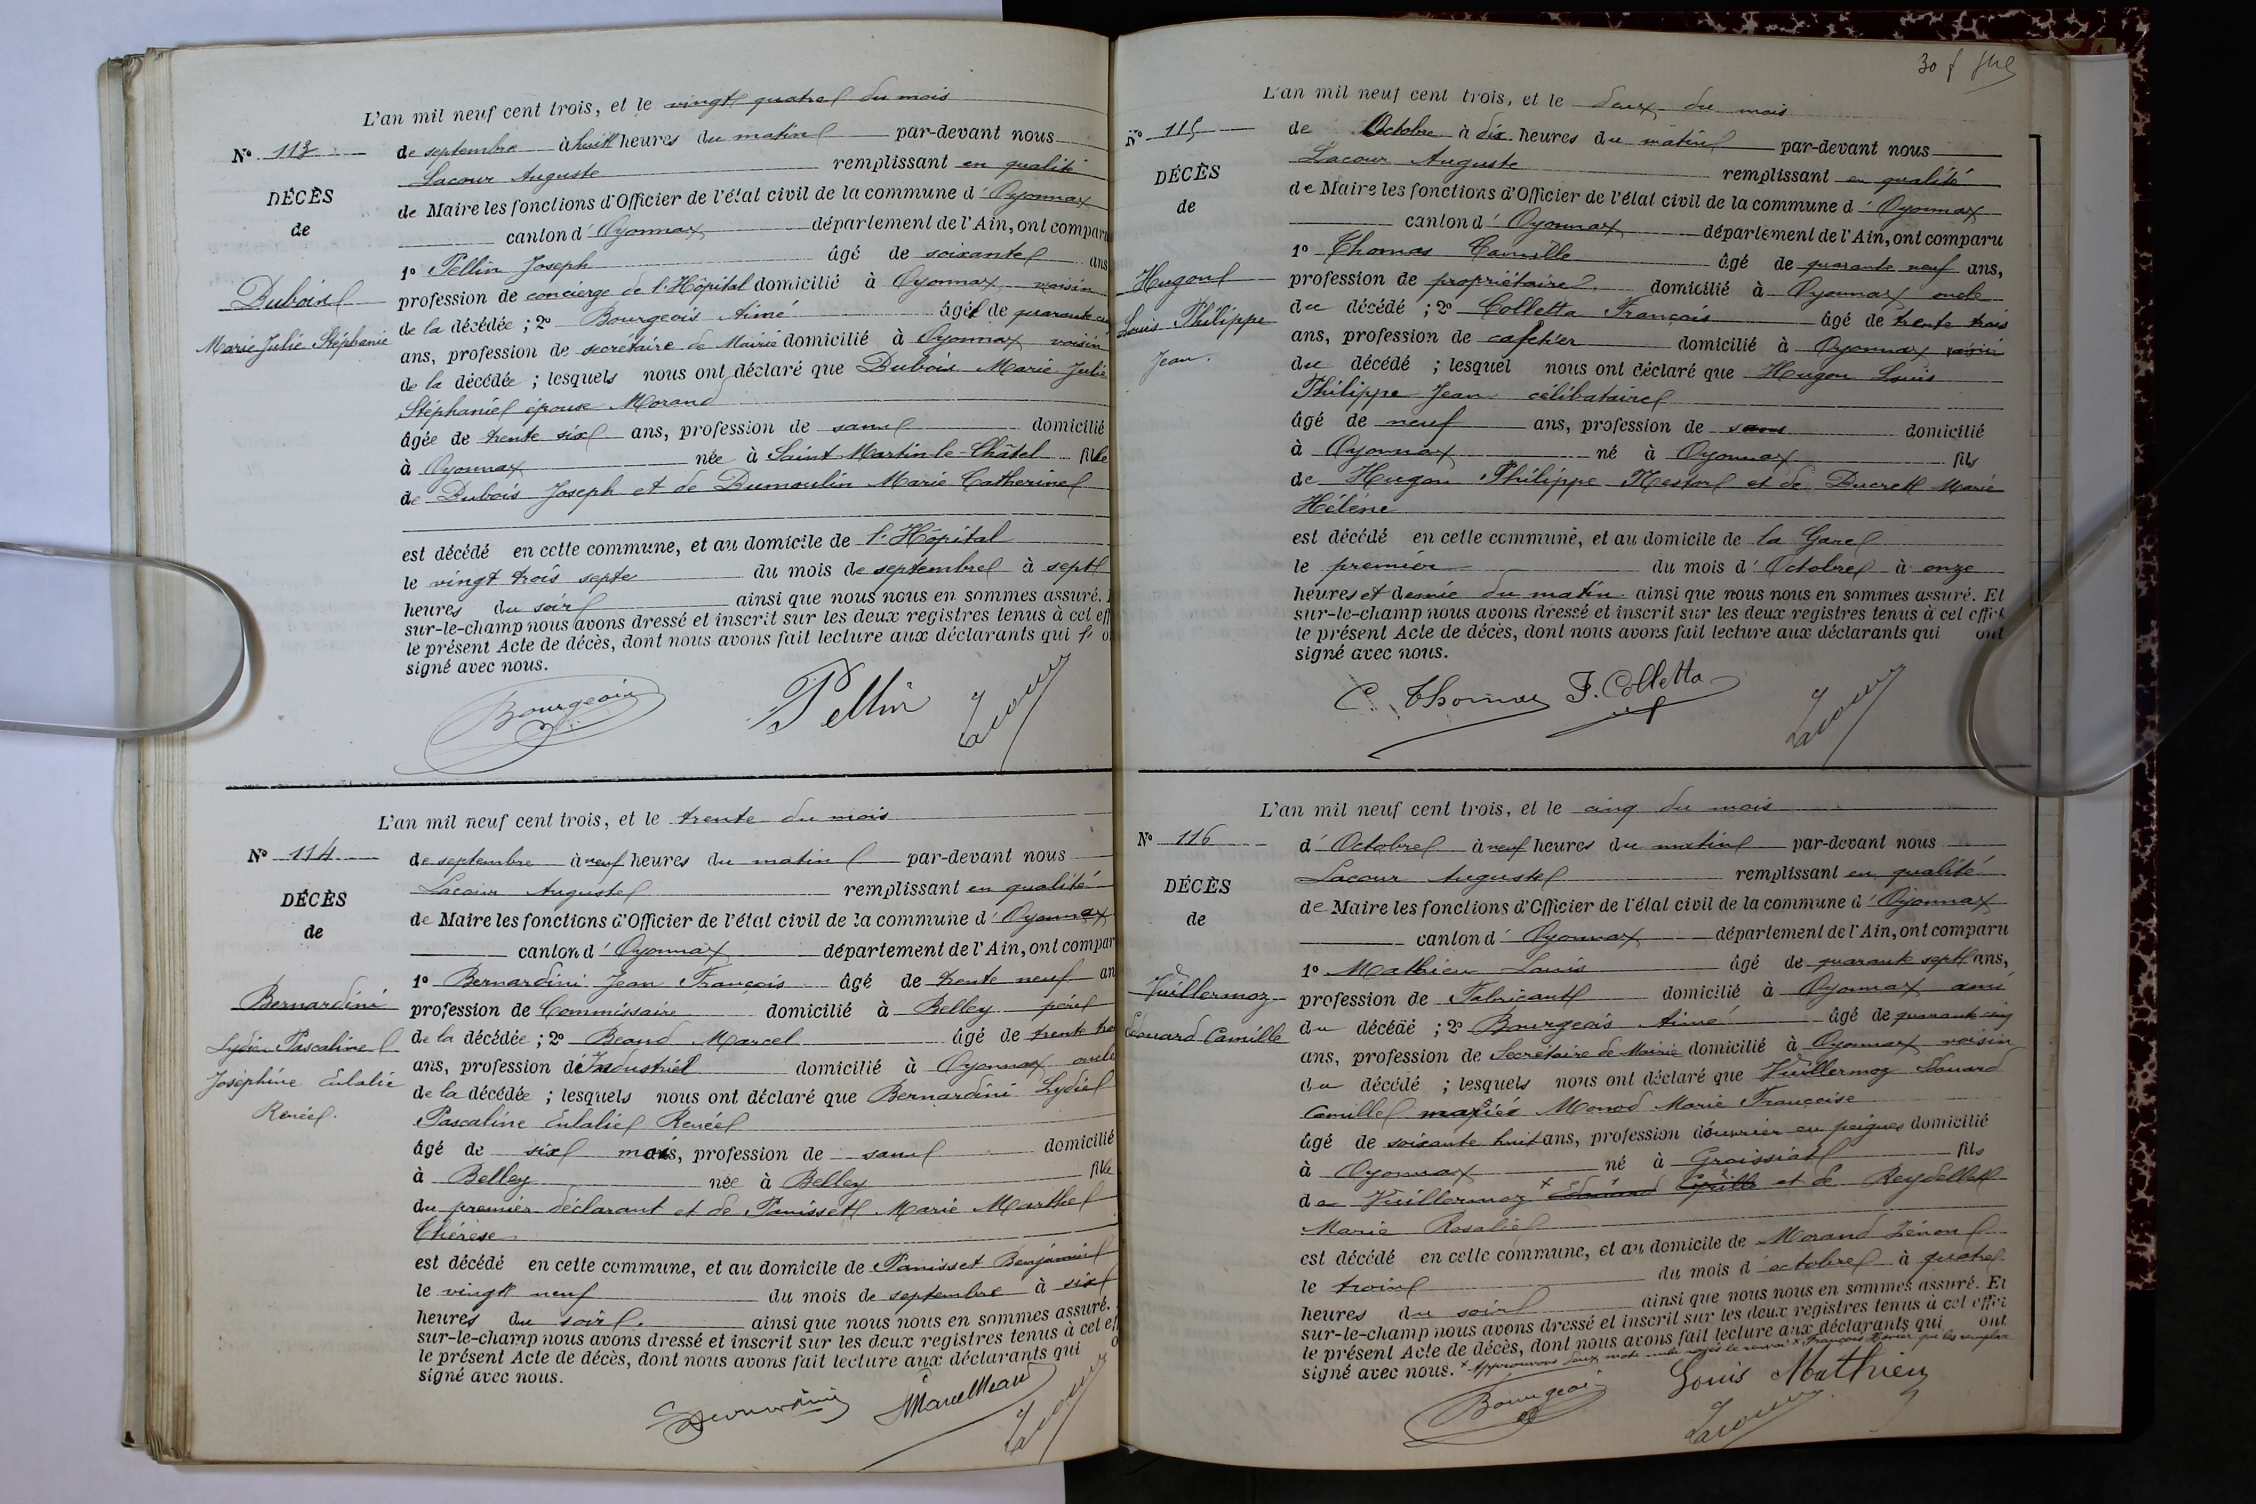 L'an mil neuf cent trois, et le vingt quatre du mois
N° 113
de septembre à huit heures du matin par-devant nous
Lacour Auguste remplissant en qualité
DÉCÈS
de Maire les fonctions d'Officier de l'état civil de la commune d'Oyonnax
de
canton d'Oyonnax département de l'Ain, ont comparu
1° Pellin Joseph âgé de soixante ans
Dubois
profession de concierge de l'Hôpital domicilié à Oyonnax voisin
de la décédée ; 2° Bourgeois Aimé âgé de quarante
Marie Julie Stéphanie
ans, profession de secrétaire de Mairie domicilié à Oyonnax voisin
de la décédée ; lesquels nous ont déclaré que Dubois Marie Julie
Stéphanie épouse Morand
âgée de trente six ans, profession de sans domicilié
à Oyonnax née à Saint Martin-le-Châtel fille
de Dubois Joseph et de Dumoulin Marie Catherine
est décédé en cette commune, et au domicile de l'Hôpital
le vingt trois septe du mois de septembre à sept
heures du soir ainsi que nous nous en sommes assuré.
sur-le-champ nous avons dressé et inscrit sur les deux registres tenus à cet eff
le présent Acte de décès, dont nous avons fait lecture aux déclarants qui
signé avec nous.
Bourgeois Pellin Lacour
L'an mil neuf cent trois, et le trente du mois
N° 114
de septembre à neuf heures du matin par-devant nous
Lacour Auguste remplissant en qualité
DÉCÈS
de Maire les fonctions d'Officier de l'état civil de la commune d'Oyonnax
de
canton d'Oyonnax département de l'Ain, ont compar
1° Bernardini Jean François âgé de trente neuf an
Bernardini
profession de Commissaire domicilié à Belley père
de la décédée ; 2° Beaud Marcel âgé de trente
Lydie Pascaline
ans, profession d'Industriel domicilié à Oyonnax oncle
Joséphine Eulalie
de la décédée ; lesquels nous ont déclaré que Bernardini Lydie
Renée.
Pascaline Eulalie Renée
âgé de six mois, profession de sans domicilié
à Belley née à Belley fille
du premier déclarant et de Panisset Marie Marthe
Thérèse
est décédé en cette commune, et au domicile de Panisset Benjamin
le vingt neuf du mois de septembre à six
heures du soir. ainsi que nous nous en sommes assuré.
sur-le-champ nous avons dressé et inscrit sur les deux registres tenus à cet ef
le présent Acte de décès, dont nous avons fait lecture aux déclarants qui
signé avec nous.
Bernardini Lacour
30 f
L'an mil neuf cent trois, et le deux du mois
N° 115
de Octobre à dix heures du matin par-devant nous
Lacour Auguste remplissant en qualité
DÉCÈS
de Maire les fonctions d'Officier de l'état civil de la commune d'Oyonnax
de
canton d'Oyonnax département de l'Ain, ont comparu
1° Thomas Camille âgé de quarante neuf ans,
Hugon
profession de propriétaire domicilié à Oyonnax oncle
du décédé ; 2° Colletta François âgé de trente trois
Louis Philippe
ans, profession de cafetier domicilié à Oyonnax voisin
Jean.
du décédé ; lesquel nous ont déclaré que Hugon Louis
Philippe Jean célibataire
âgé de neuf ans, profession de sans domicilié
à Oyonnax né à Oyonnax fils
de Hugon Philippe Nestor et de Ducret Marie
Hélène
est décédé en cette commune, et au domicile de la Gare
le premier du mois d'Octobre à onze
heures et demie du matin ainsi que nous nous en sommes assuré. Et
sur-le-champ nous avons dressé et inscrit sur les deux registres tenus à cet effet
le présent Acte de décès, dont nous avons fait lecture aux déclarants qui ont
signé avec nous.
C. Thomas F. Colletta Lacour
L'an mil neuf cent trois, et le cinq du mois
N° 116
d'Octobre à neuf heures du matin par-devant nous
Lacour Auguste remplissant en qualité
DÉCÈS
de Maire les fonctions d'Officier de l'état civil de la commune d'Oyonnax
de
canton d'Oyonnax département de l'Ain, ont comparu
1° Mathieu Louis âgé de quarante sept ans,
Vuillermoz
profession de Fabricant domicilié à Oyonnax ami
du décédé ; 2° Bourgeois Aimé âgé de quarante cinq
Edouard Camille
ans, profession de Secrétaire de Mairie domicilié à Oyonnax voisin
du décédé ; lesquels nous ont déclaré que Vuillermoz Edouard
Camille marié Monod Marie Françoise
âgé de soixante huit ans, profession d'ouvrier en peignes domicilié
à Oyonnax né à Groissiat fils
de Vuillermoz x Edouard Cyrille et de Reydellet
Marie Rosalie
est décédé en cette commune, et au domicile de Morand Zénon
le trois du mois d'octobre à quatre
heures du soir ainsi que nous nous en sommes assuré. Et
sur-le-champ nous avons dressé et inscrit sur les deux registres tenus à cet effet
le présent Acte de décès, dont nous avons fait lecture aux déclarants qui ont
signé avec nous. x Approuvons deux mots nuls rayés le renvoi x François Xavier qui les remplace
Bourgeois Louis Mathieu Lacour